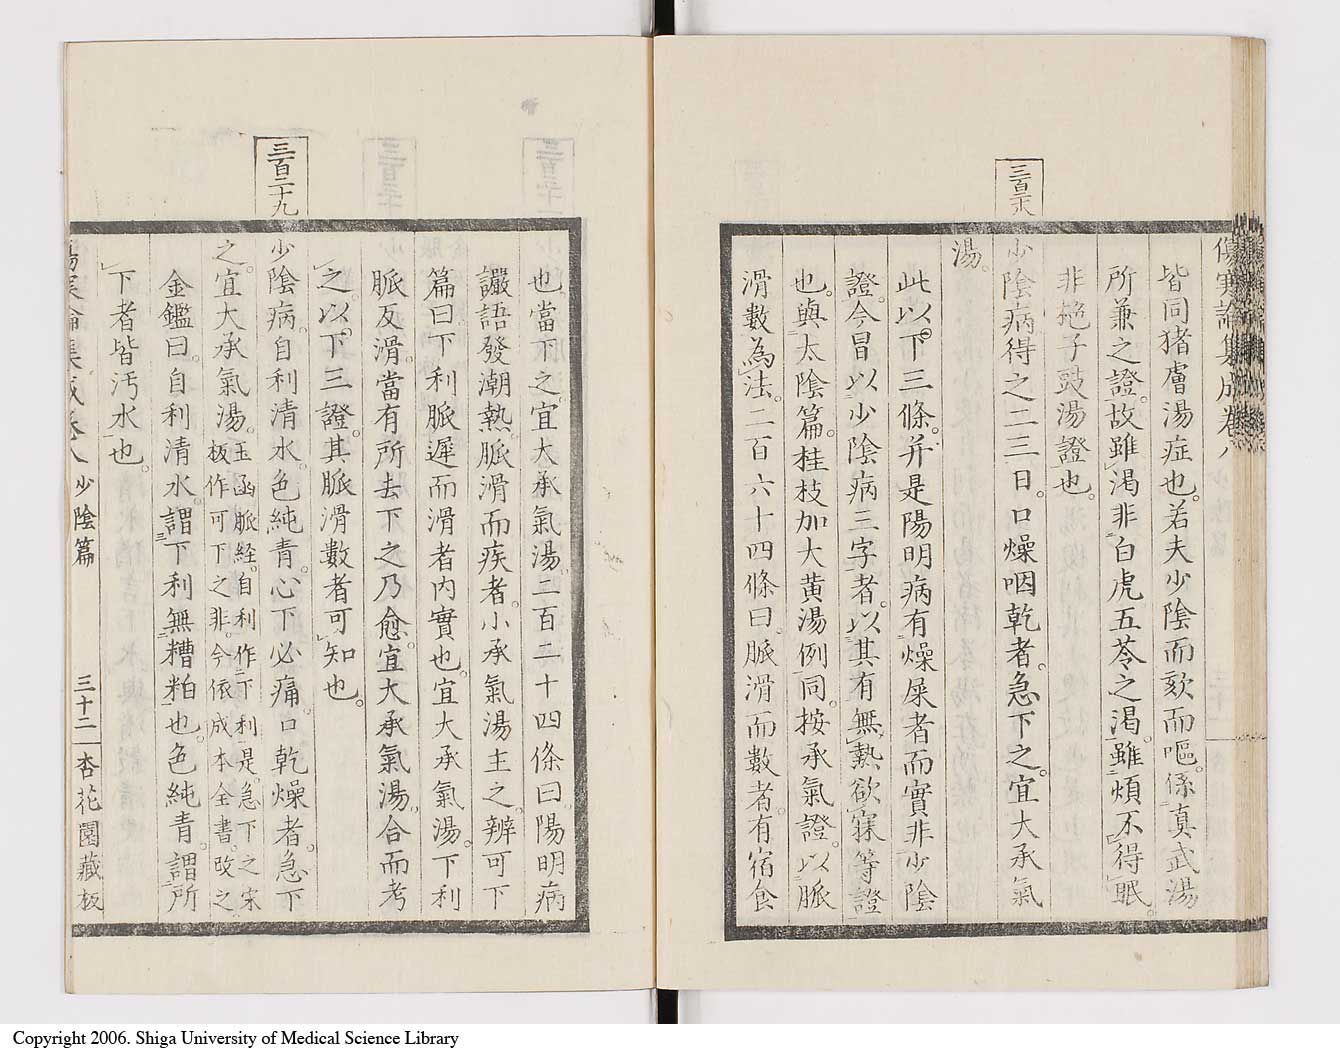 傷寒論集成卷八
皆同猪膚湯症也。若夫少陰而欬而嘔。係眞武湯
所兼之證。故雖渇非白虎五苓之渇。雖煩不得眠。
非梔子豉湯證也。
三百二十八
少陰病。得之二三日。口燥咽乾者。急下之。宜大承氣
湯。
此以下三條。并是陽明病有燥屎者而實非少陰
證。今冒以少陰病三字者。以其有無熱欲寐等證
也。與太陰篇。桂枝加大黄湯例同。按承氣證。以脈
滑數為法。二百六十四條曰。脈滑而數者。有宿食
也。當下之。宜大承氣湯。二百二十四條曰。陽明病
讝語發潮熱。脈滑而疾者。小承氣湯主之。辨可下
篇曰。下利脈遲而滑者。内實也。宜大承氣湯。下利
脈反滑。當有所去。下之乃愈。宜大承氣湯。合而考
之。以下三證。其脈滑數者可知也。
三百二十九
少陰病。自利清水。色純青。心下必痛。口乾燥者。急下
之。宜大承氣湯。玉函脈経。自利作下利。是。急下之宋
板作可下之非。今依成本全書。改之
金鑑曰。自利清水。謂下利無糟粕也。色純青。謂所
下者皆汚水也。
傷寒論集成卷八 少陰篇 三十二 杏花園藏板
Copyright 2006. Shiga University of Medical Science Library